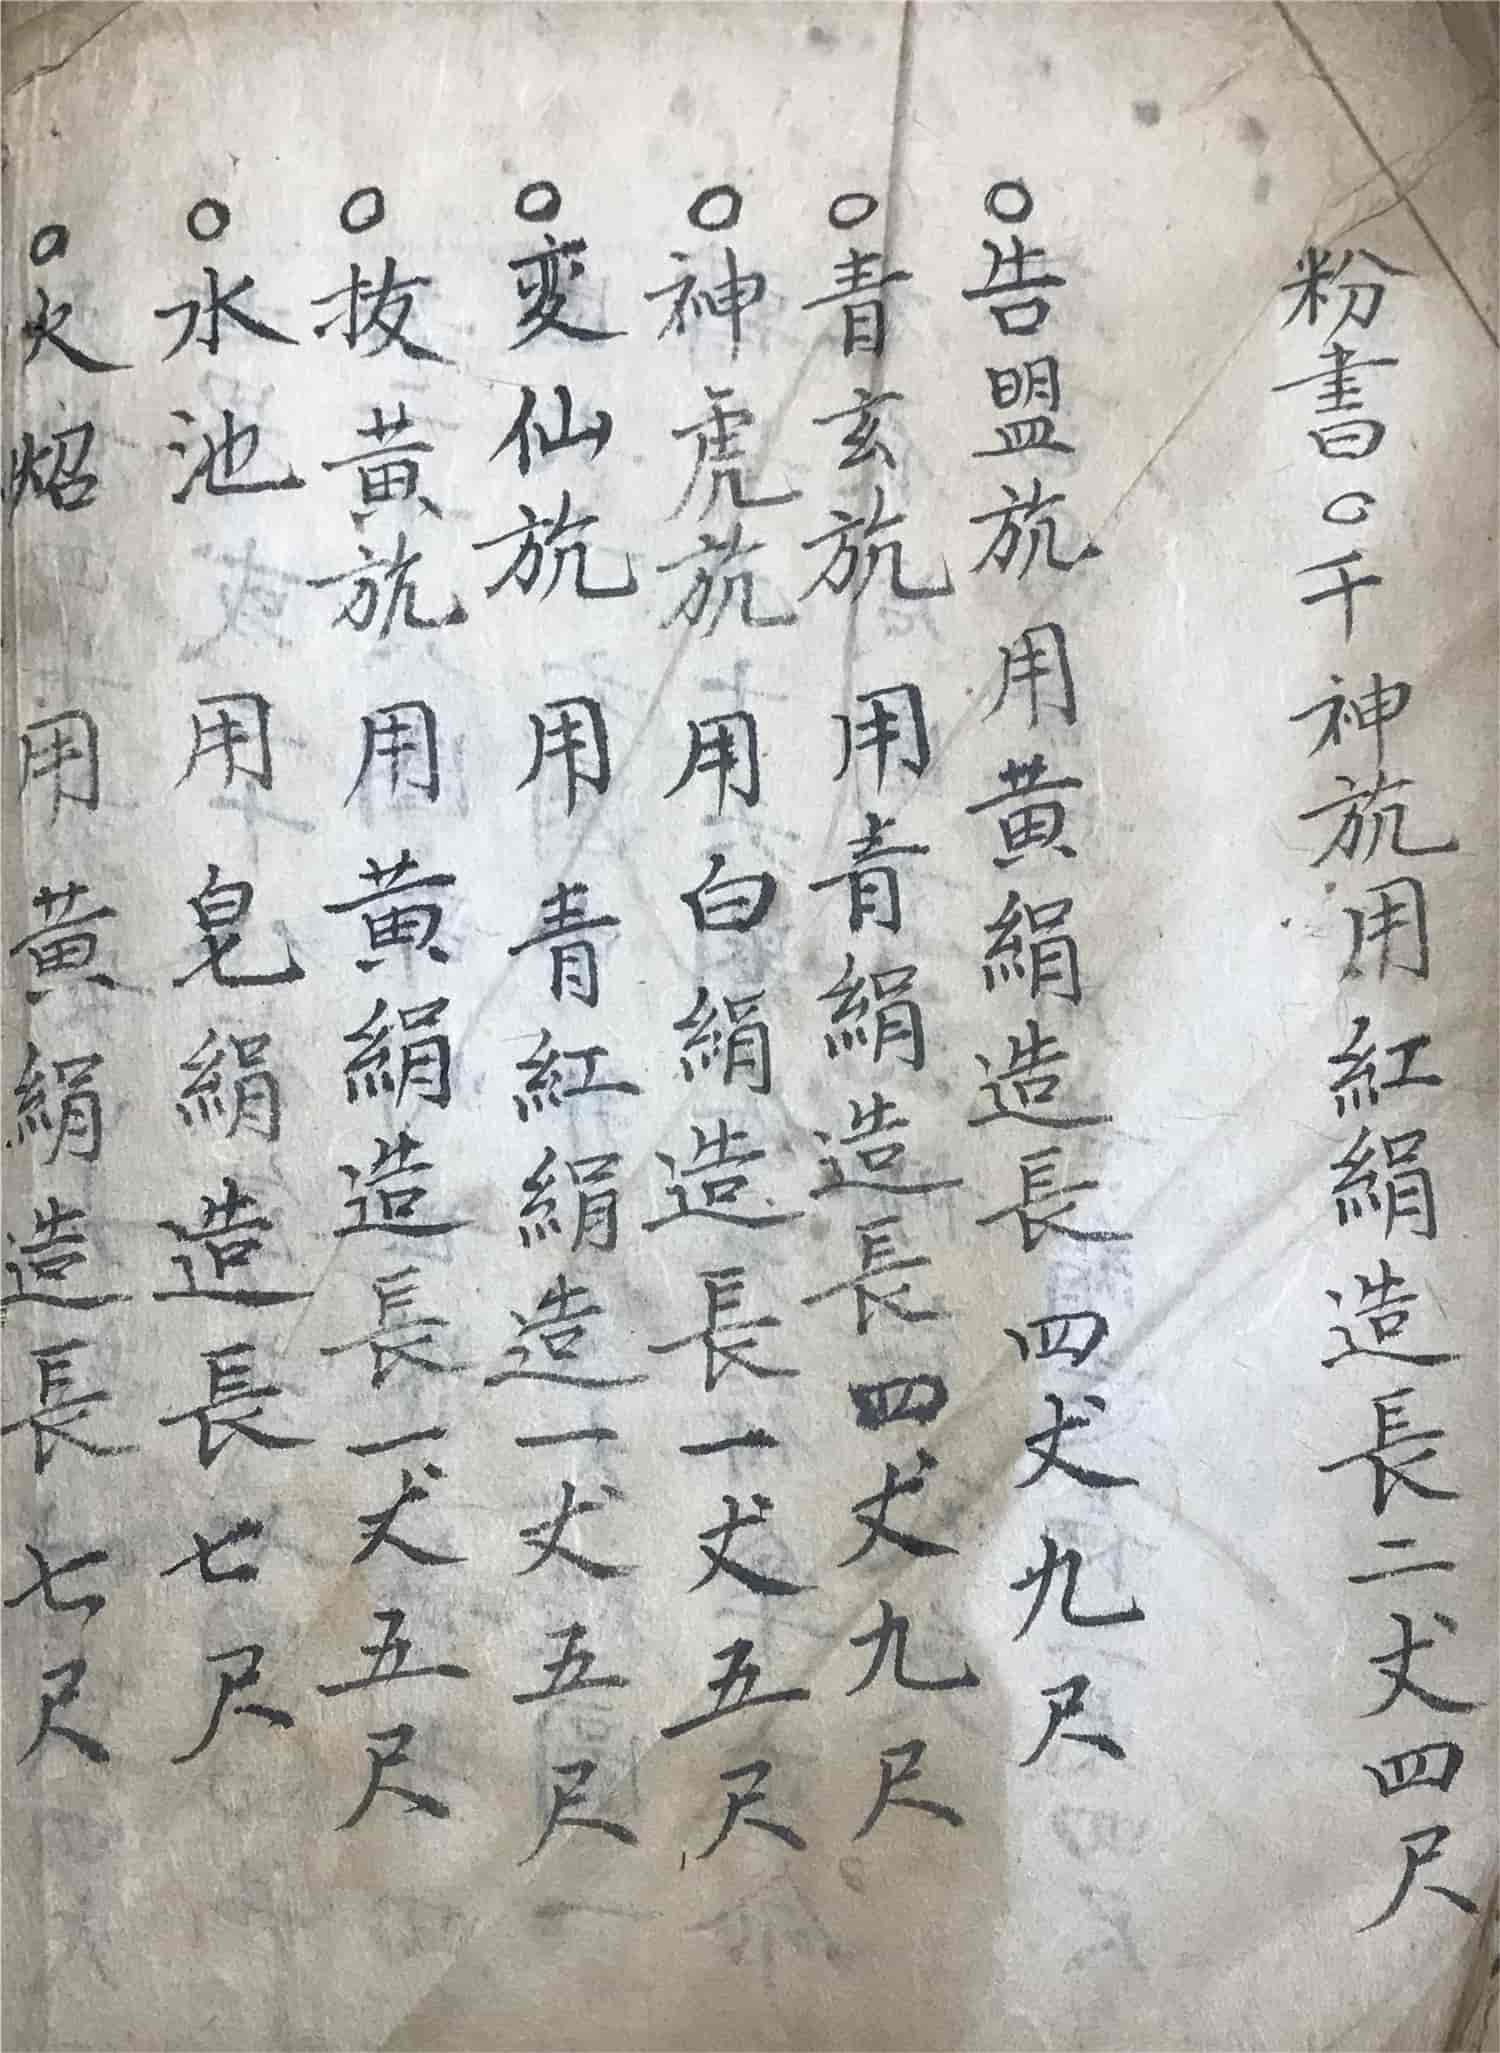 粉書○千神斻用紅絹造長二丈四尺
○告盟斻用黄絹造長四丈九尺
○青玄斻用青絹造長四丈九尺
○神虎斻用白絹造長一丈五尺
○変仙斻用青紅絹造一丈五尺
○抜黄斻用黄絹造長一丈五尺
○水池用皂絹造長七尺
○火炤用黄絹造長七尺